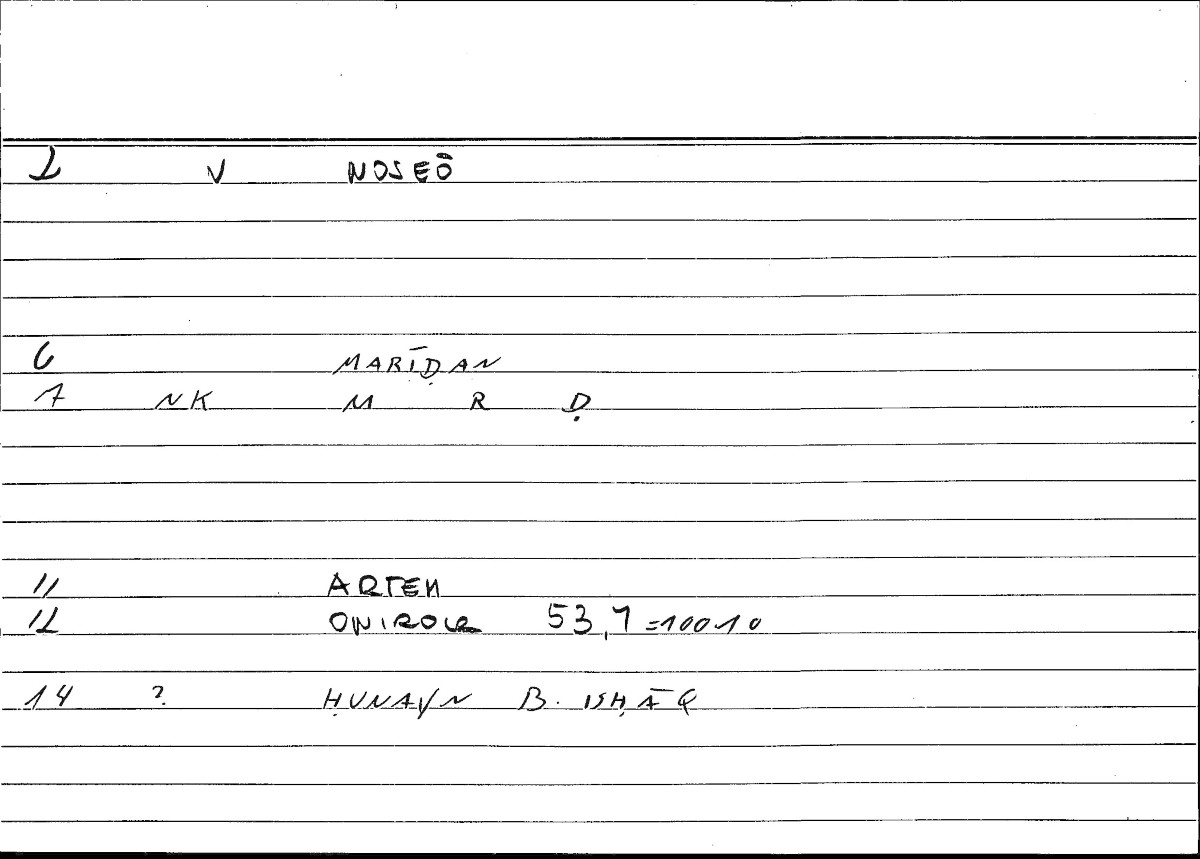 2 V NOSEŌ
6 MARĪḌAN
7 NK M R Ḍ
11 ARTEM
12 ONIROCR 53,7=10010
14 ? ḤUNAYN B. ISḤĀQ